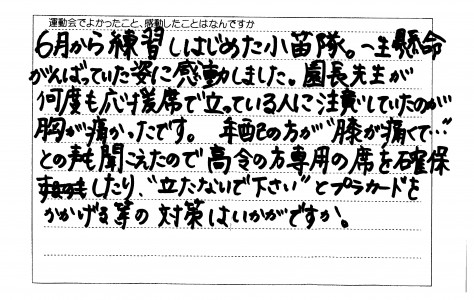 運動会でよかったこと、感動したことはなんですか
6月から練習しはじめた小笛隊。一生懸命
がんばっていた姿に感動しました。園長先生が
何度も応援席で立っている人に注意していたのが
胸が痛かったです。年配の方が“膝が痛くて…”
との声も聞こえたので高令の方専用の席を確保
したり、“立たないで下さい”とプラカードを
かかげる等の対策はいかがですか。